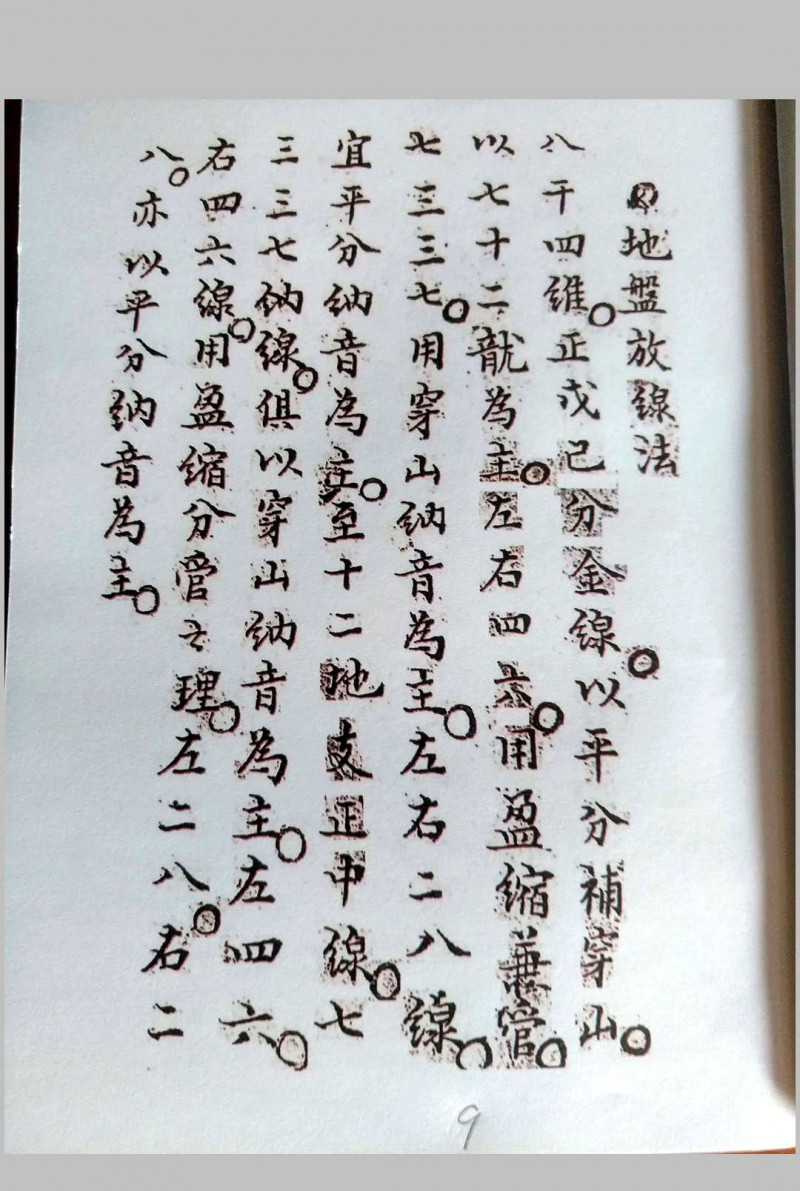 地盤放線法
八干四維。正戊己分金線。以平分補穿山。
以七十二龍為主。左右四六。用盈縮兼管。
七三三七。用穿山納音為主。左右二八線。
宜平分納音為主。至十二地支正中線。七
三三七納線。俱以穿山納音為主。左四六。
右四六線。用盈縮分管之理。左二八。右二
八。亦以平分納音為主。
9